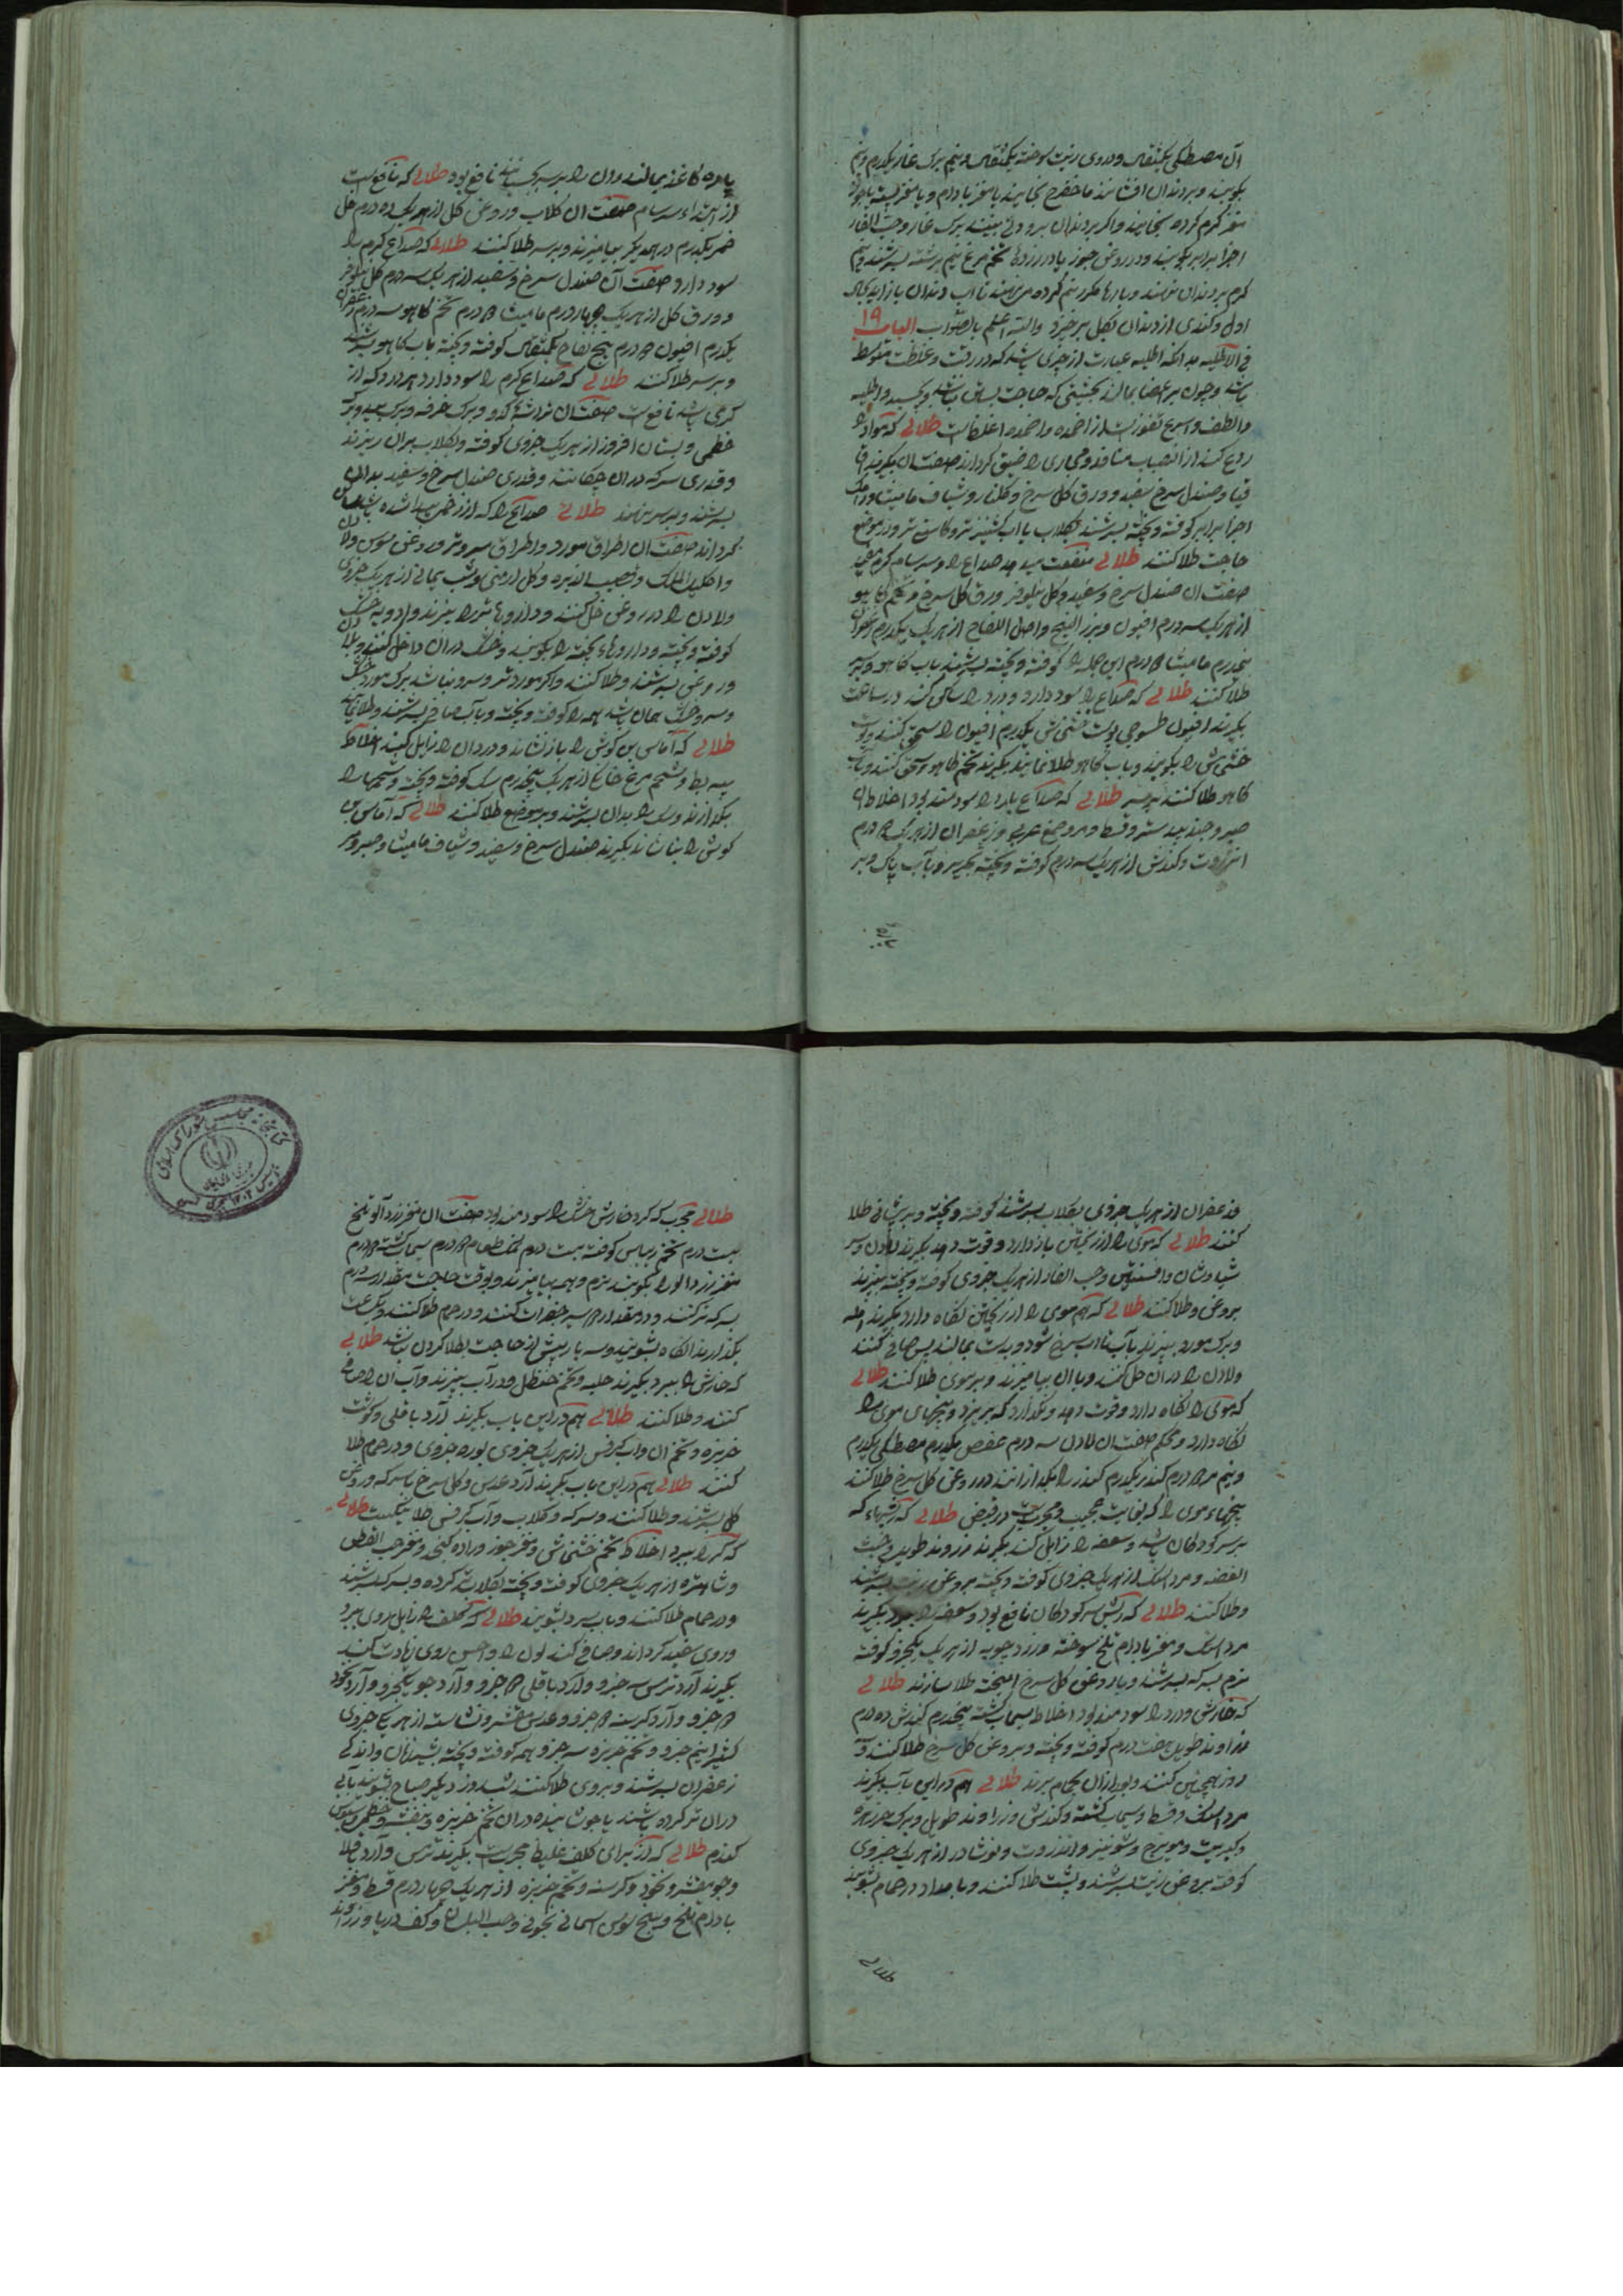 آن مصطکی یکمثقال و دردی زیت سوخته یکمثقال و نیم برک غار یکدرم و نیم
بکوبند و بر دندان افشانند با مغز بادام و یا مغز پسته
مغز کرم کرده بخایند و اکر بر دندان برک غار و حب الغار
اجزا برابر بکوبند و در روغن جوز یا در زرده تخم مرغ نیم برشته بسرشند و نیم
کرم بر دندان نهند و بارها مکرر نیم کرده می نهند تا آب دندان باز آید بحال
اول و کندی از دندان بکل برخیزد والله اعلم بالصواب الباب ۱۹
فی الاطلیه بدانکه اطلیه عبارت از چیزی باشد که در رقت و غلظت متوسط
باشد و چون بر اعضا بمالند بحیثیتی که حاجت ببستن نباشد و بچسبد و اطلیه
الطف و اسرع نفوذ است از اضمده و اضمده اغلظ است طلائی که مواد را
ردع کند از انصباب منافذ و مجاری را ضیق کرداند صفت آن بکیرند اقا
قیا و صندل سرخ سفید و ورق کل سرخ و کلنار و شیاف مامیثا
اجزا برابر کوفته و بیخته بسرشند بکلاب یا آب کشنیز تر و کاسنی تر و بر موضع
حاجت طلا کنند طلائی منفعت میدهد صداع را و سرسام کرم
صفت آن صندل سرخ و سفید و کل نیلوفر و ورق کل سرخ و تخم کاهو
از هر یک سه درم افیون و بزر البنج و اصل اللفاح از هر یک یکدرم زعفران
نیمدرم مامیثا ۲ درم این جمله را کوفته و بیخته بسرشند بآب کاهو و بر سر
طلا کنند طلائی که صداع را سود دارد و درد را ساکن کند در ساعت
بکیرند افیون طسوجی پوست خشخاش یکدرم افیون را سحق کنند و پوست
خشخاش را بکوبند و بآب کاهو طلا نمایند بکیرند تخم کاهو سحق کنند و بآب
کاهو طلا کنند بر سر طلائی که صداع بارد را سودمند بود اخلاط آن
صبر و جندبیدستر و قسط و مر و صمغ عربی و زعفران از هر یک ۲ درم
انزروت و کندش از هر یک سه درم کوفته و بیخته بحریر و بآب پاک و بر
پاره کاغذ بمالند و آن را بر سر بچسبانند نافع بود طلائی که نافع است
از ابتداء سرسام صفت آن کلاب و روغن کل از هر یک ده درم خل
خمر یکدرم در همدیکر بیامیزند و بر سر طلا کنند طلائی که صداع کرم را
سود دارد صفت آن صندل سرخ و سفید از هر یک سه درم کل نیلوفر
و ورق کل از هر یک چهار درم مامیثا ۲ درم تخم کاهو سه درم زعفران
یکدرم افیون ۲ درم بیخ لفاح یکمثقال کوفته و بیخته بآب کاهو بسرشند
و بر سر طلا کنند طلائی که صداع کرم را سود دارد و هر درد که از
کرمی باشد نافع است صفت آن تراشه کدو و برک خرفه و برک بید و برک
خطمی و بستان افروز از هر یک جزوی کوفته و بکلاب بر آن ریزند
و قدری سرکه در آن چکانند و قدری صندل سرخ و سفید بدان
بسرشند و بر سر نهند طلائی صداع را که از خمر پیدا شده باشد
کرداند صفت آن اطراف مورد و اطراف سرو تر و روغن سوسن و لادن
و اکلیل الملک و قصب الذریره و کل ارمنی و شب یمانی از هر یک جزوی
و لادن را در روغن حل کنند و داروها تر را بپزند و ادویه خشک
کوفته و بیخته و داروهاء پخته را بکوبند و خشک در آن داخل کنند و بلادن
و روغن بسرشند و طلا کنند و اکر مورد تر و سرو نباشد برک مورد خشک
و سرو خشک همان باشد همه را کوفته و بیخته و بآب صافی بسرشند و طلا نمایند
طلائی که آماس بن کوش را بازنشاند و درد آن را زایل کند اخلاط
پیه بط و شحم مرغ خانکی از هر یک پنجدرم سک کوفته و بیخته و شحمها را
بکدازند و سک را بدان بسرشند و بر موضع طلا کنند طلائی که آماس بن
کوش را بنشاند بکیرند صندل سرخ و سفید و شیاف مامیثا و صبر و مر
و زعفران از هر یک جزوی بکلاب بسرشند کوفته و بیخته و بر پیشانی طلا
کنند طلائی که موی را از ریختن باز دارد و قوت دهد بکیرند لادن و پر
سیاوشان و افسنتین و حب الغار از هر یک جزوی کوفته و بیخته بپزند
بروغن و طلا کنند طلائی که هم موی را از ریختن نکاه دارد بکیرند آمله
و برک مورد بپزند بآب تا آب سرخ شود و بدست بمالند پس صافی کنند
و لادن را در آن حل کنند و با آن بیامیزند و بر موی طلا کنند طلائی
که موی را نکاه دارد و قوت دهد و نکذارد که بریزد و بیخهای موی را
نکاه دارد و محکم صفت آن لادن سه درم عفص یکدرم مصطکی یکدرم
و نیم مر ۲ درم کندر یکدرم کندر را بکدازانند در روغن کل سرخ طلا کنند
بیخهاء موی را که بغایت عجیب و مجرب است در قبض طلائی که ریشهاء که
بر سر کودکان باشد و سعفه را زایل کند بکیرند زراوند طویل و خبث
الفضه و مرداسنک از هر یک جزوی کوفته و بیخته بروغن زیت بسرشند
و طلا کنند طلائی که ریش سر کودکان نافع بود و سعفه را ببرد بکیرند
مرداسنک و مغز بادام تلخ سوخته و زردچوبه از هر یک یکجزو کوفته
نرم بسرکه بسرشند و با روغن کل سرخ امیخته طلا سازند طلائی
که خارش و درد را سودمند بود اخلاط سیماب کشته پنجدرم کندش ده درم
زراوند طویل هفت درم کوفته و بیخته و بروغن کل سرخ طلا کنند و
روز همچنین کنند و بعد از آن بحمام برند طلائی هم در این باب بکیرند
مرداسنک و قسط و سیماب کشته و کندش و زراوند طویل و برک خرزهره
و کبریت و مویزج و شونیز و انزروت و نوشادر از هر یک جزوی
کوفته بروغن زیت بسرشند و بشب طلا کنند و بامداد در حمام بشویند
طلائی
طلائی مجرب که کرد خارش خشک را سودمند بود صفت آن مغز زردآلو تلخ
بیست درم تخم ریباس کوفته بیست درم نمک طعام ۲ درم سیماب کشته ۲ درم
مغز زردآلو را بکوبند نرم و همه بیامیزند و بوقت حاجت مقدار سه درم
بسرکه تر کنند و در حمام طلا کنند و یک ساعت
بکذارند آنکاه بشویند و سه بار بیش از حاجت بطلا کردن نباشد طلائی
که خارش را ببرد بکیرند حلبه و تخم حنظل و در آب بپزند و آب آن را صافی
کنند و طلا کنند طلائی هم در این باب بکیرند آرد باقلی و کوشت
خربزه و تخم آن و آب کرفس از هر یک جزوی بوره جزوی و در حمام طلا
کنند طلائی هم در این باب بکیرند آرد عدس و کل سرخ با سرکه و روغن
کل بسرشند و طلا کنند و سرکه و کلاب و آب کرفس طلا نیکست طلائی
که کر را ببرد اخلاط تخم خشخاش و مغز جوز و مغز حب القطن
و شاهتره از هر یک جزوی کوفته و بیخته بکلاب تر کرده و بسرکه بسرشند
و در حمام طلا کنند و بآب سرد بشویند طلائی که کلف را زایل
و روی سفید کرداند و صافی کند لون را و حسن روی زیادت کند
بکیرند آرد ترمس سه جزو و آرد باقلی ۲ جزو و آرد جو یکجزو و آرد نخود
۲ جزو و آرد کرسنه ۲ جزو و عدس مقشر و نشاسته از هر یک جزوی
کتیرا نیم جزو و تخم خربزه سه جزو همه کوفته و بیخته بشیر زنان و اندکی
زعفران بسرشند و بر روی طلا کنند بشب و روز دیکر صباح بشویند بآبی
در آن تر کرده باشند یا جوشانیده در آن تخم خربزه و بنفشه و خطمی و سبوس
کندم طلائی که از برای کلف غلیظ مجرب است بکیرند ترمس و آرد باقلا
و جو مقشر و نخود و کرسنه و تخم خربزه از هر یک چهار درم قسط و مغز
بادام تلخ و بیخ سوسن اسمانجونی و حب البان و کف دریا و زراوند